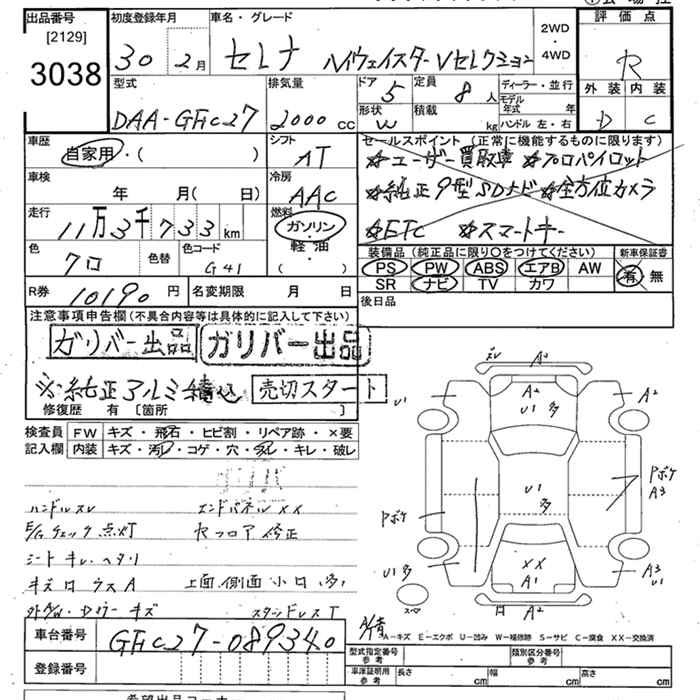 出品番号 [2129] 3038
初度登録年月 30年 2月
車名・グレード セレナ ハイウェイスターVセレクション
2WD・4WD
評価点 R
外装 D 内装 C
型式 DAA-GFC27
排気量 2000 cc
ドア 5
定員 8人
ディーラー・並行
形状 W
積載 kg
モデル年式 年
ハンドル 左・右
車歴 自家用・( )
シフト AT
セールスポイント (正常に機能するものに限ります)
☆ユーザー買取車 ☆プロパイロット
☆純正9型SDナビ ☆全方位カメラ
☆ETC ☆スマートキー
車検 年 月( 日)
冷房 AAC
走行 11万3千733km
燃料 ガソリン・軽油・( )
色 クロ
色替
色コード G41
装備品 (純正品に限り○をつけてください)
PS PW ABS エアB AW
SR ナビ TV カワ
新車保証書 有 無
R券 10190円
名変期限 月 日
後日品
注意事項申告欄(不具合内容等は具体的に記入して下さい)
ガリバー出品 ガリバー出品
※純正アルミ積込 売切スタート
修復歴 有 [箇所 ]
検査員記入欄
FW キズ・飛石・ヒビ割・リペア跡・×要
内装 キズ・汚レ・コゲ・穴・スレ・キレ・破レ
ハンドルスレ エンドパネルXX
E/Gチェック点灯
シートキレ・ヘタリ
上面、側面小凹(多)
スタッドレスT
車台番号 GFC27-089340
登録番号
A2
A2
U1多
U1
A2
Pボケ
A3
U1多
Pボケ
U1多
XX
A1
A3
U1
A2
A-キズ E-エクボ U-凹み W-補修跡 S-サビ C-腐食 XX-交換済
型式指定番号 参考
類別区分番号 参考
車庫証明用 参考 長さ cm 幅 cm 高さ cm